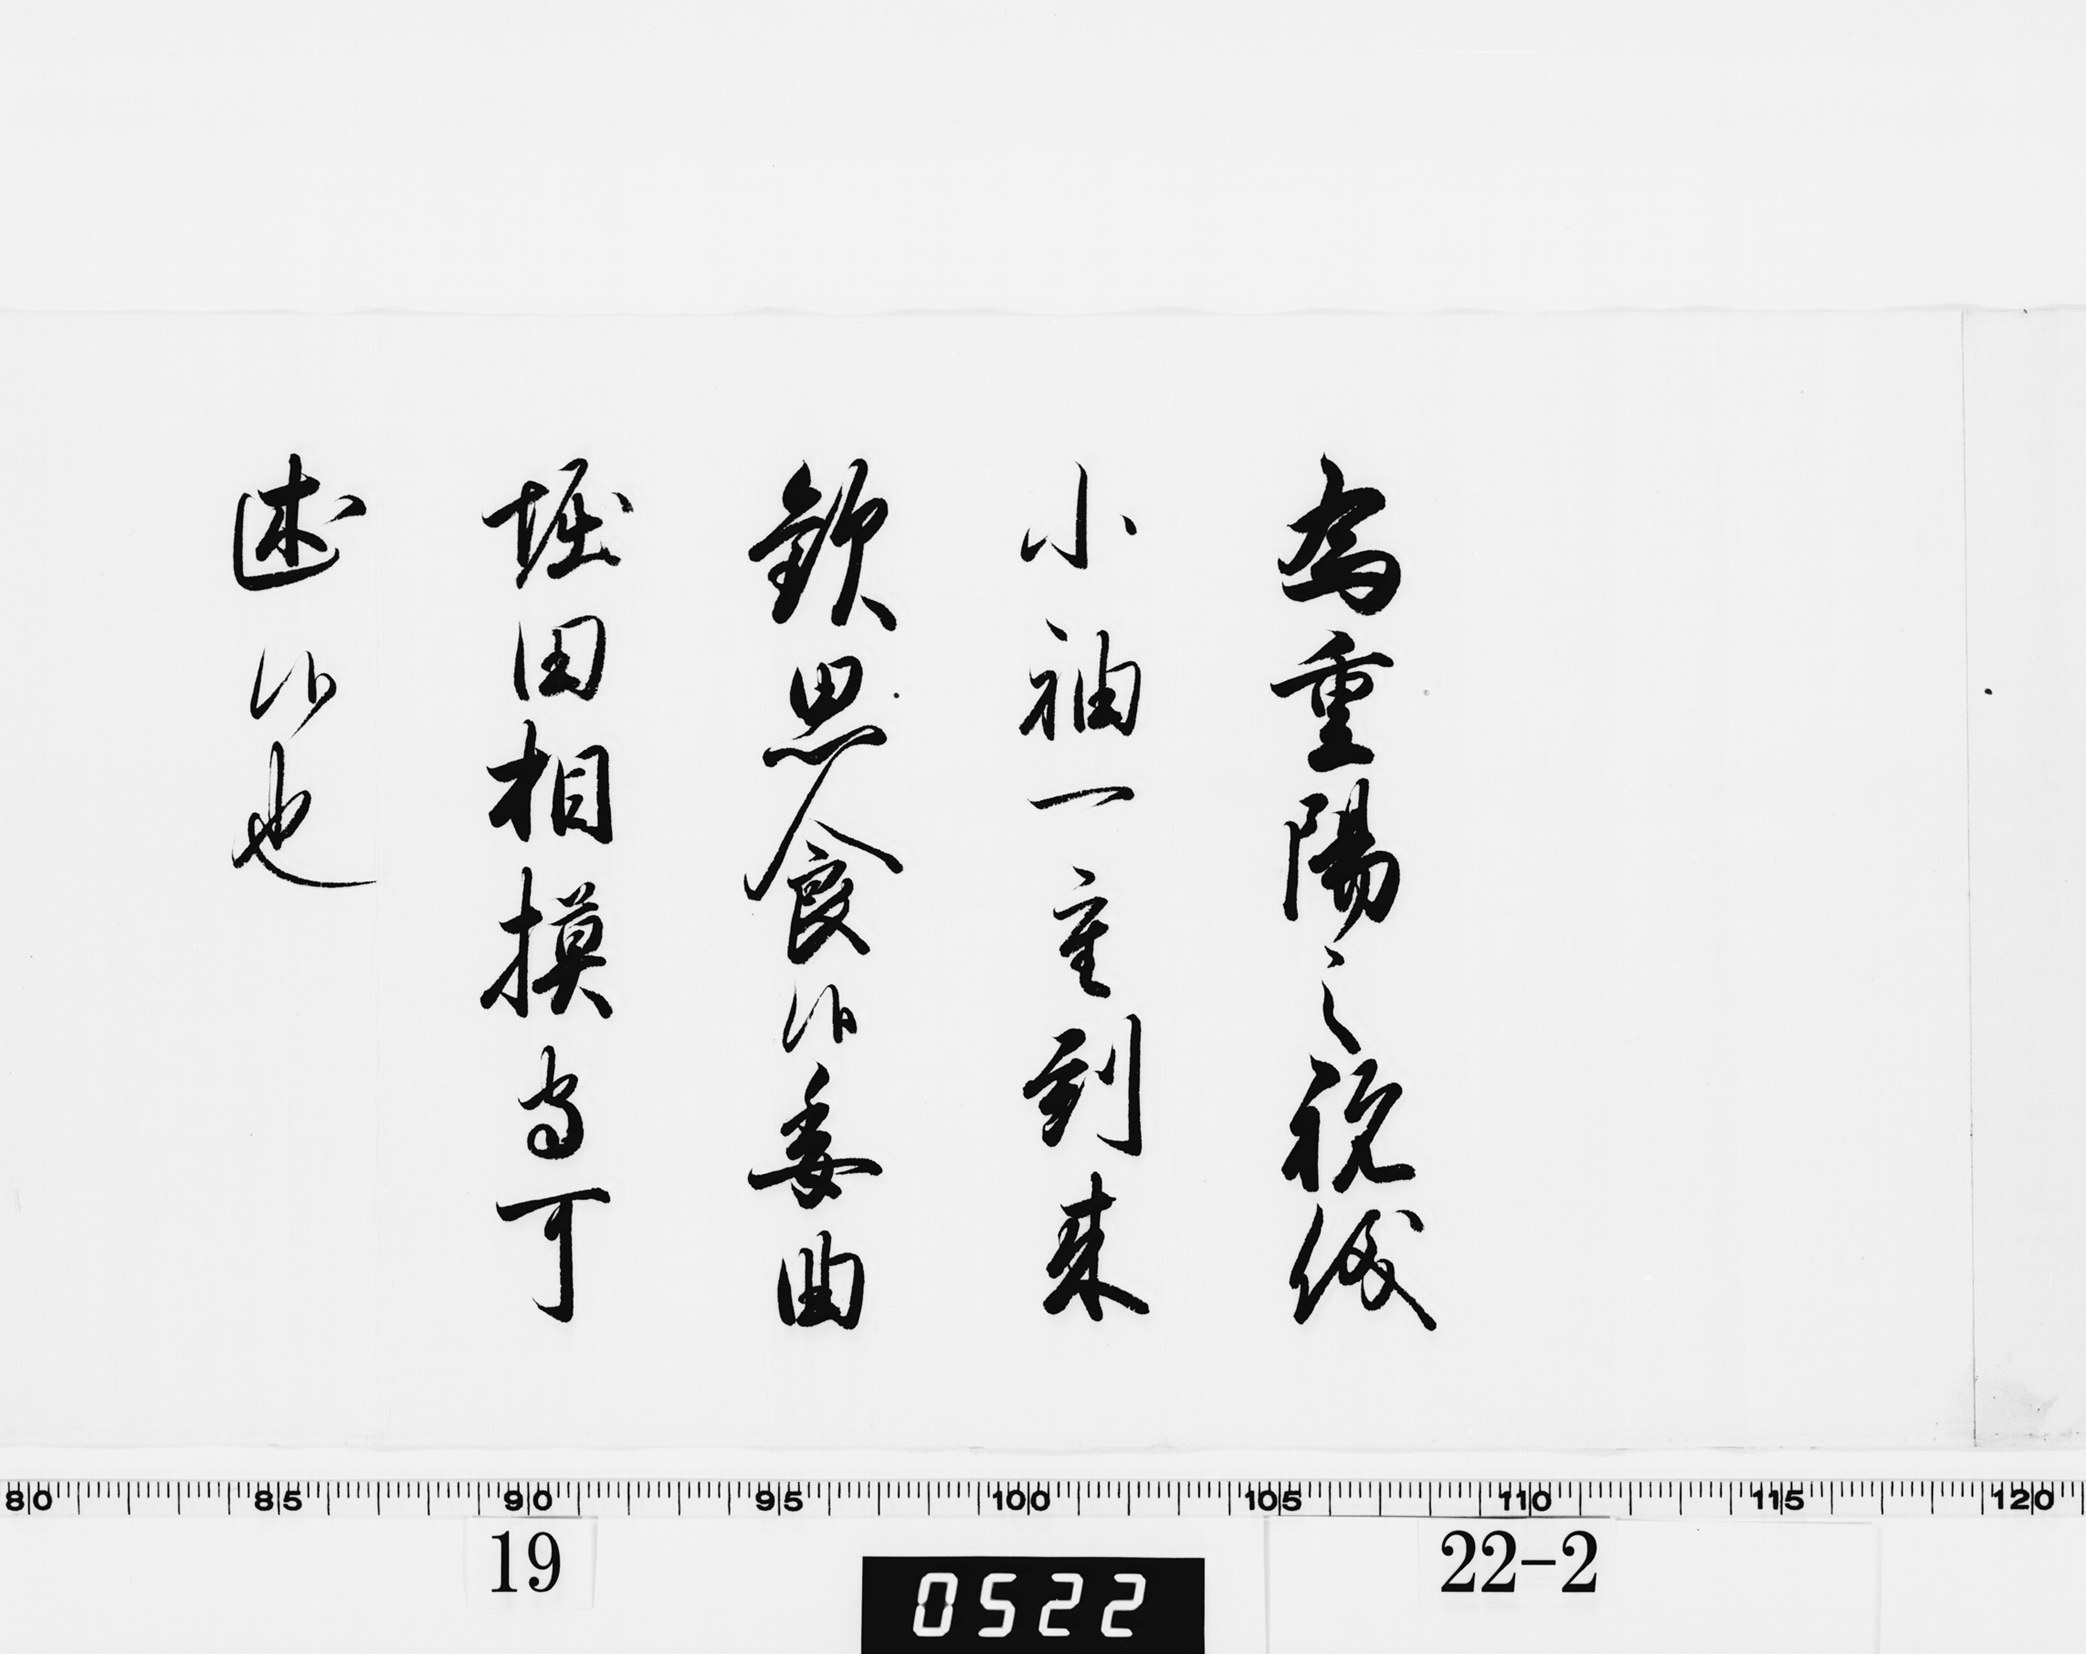 為重陽之祝儀
小袖一重到来
歓思食候委曲
堀田相摸守可
述候也
80 85 90 95 100 105 110 115 120
19
0522
22-2